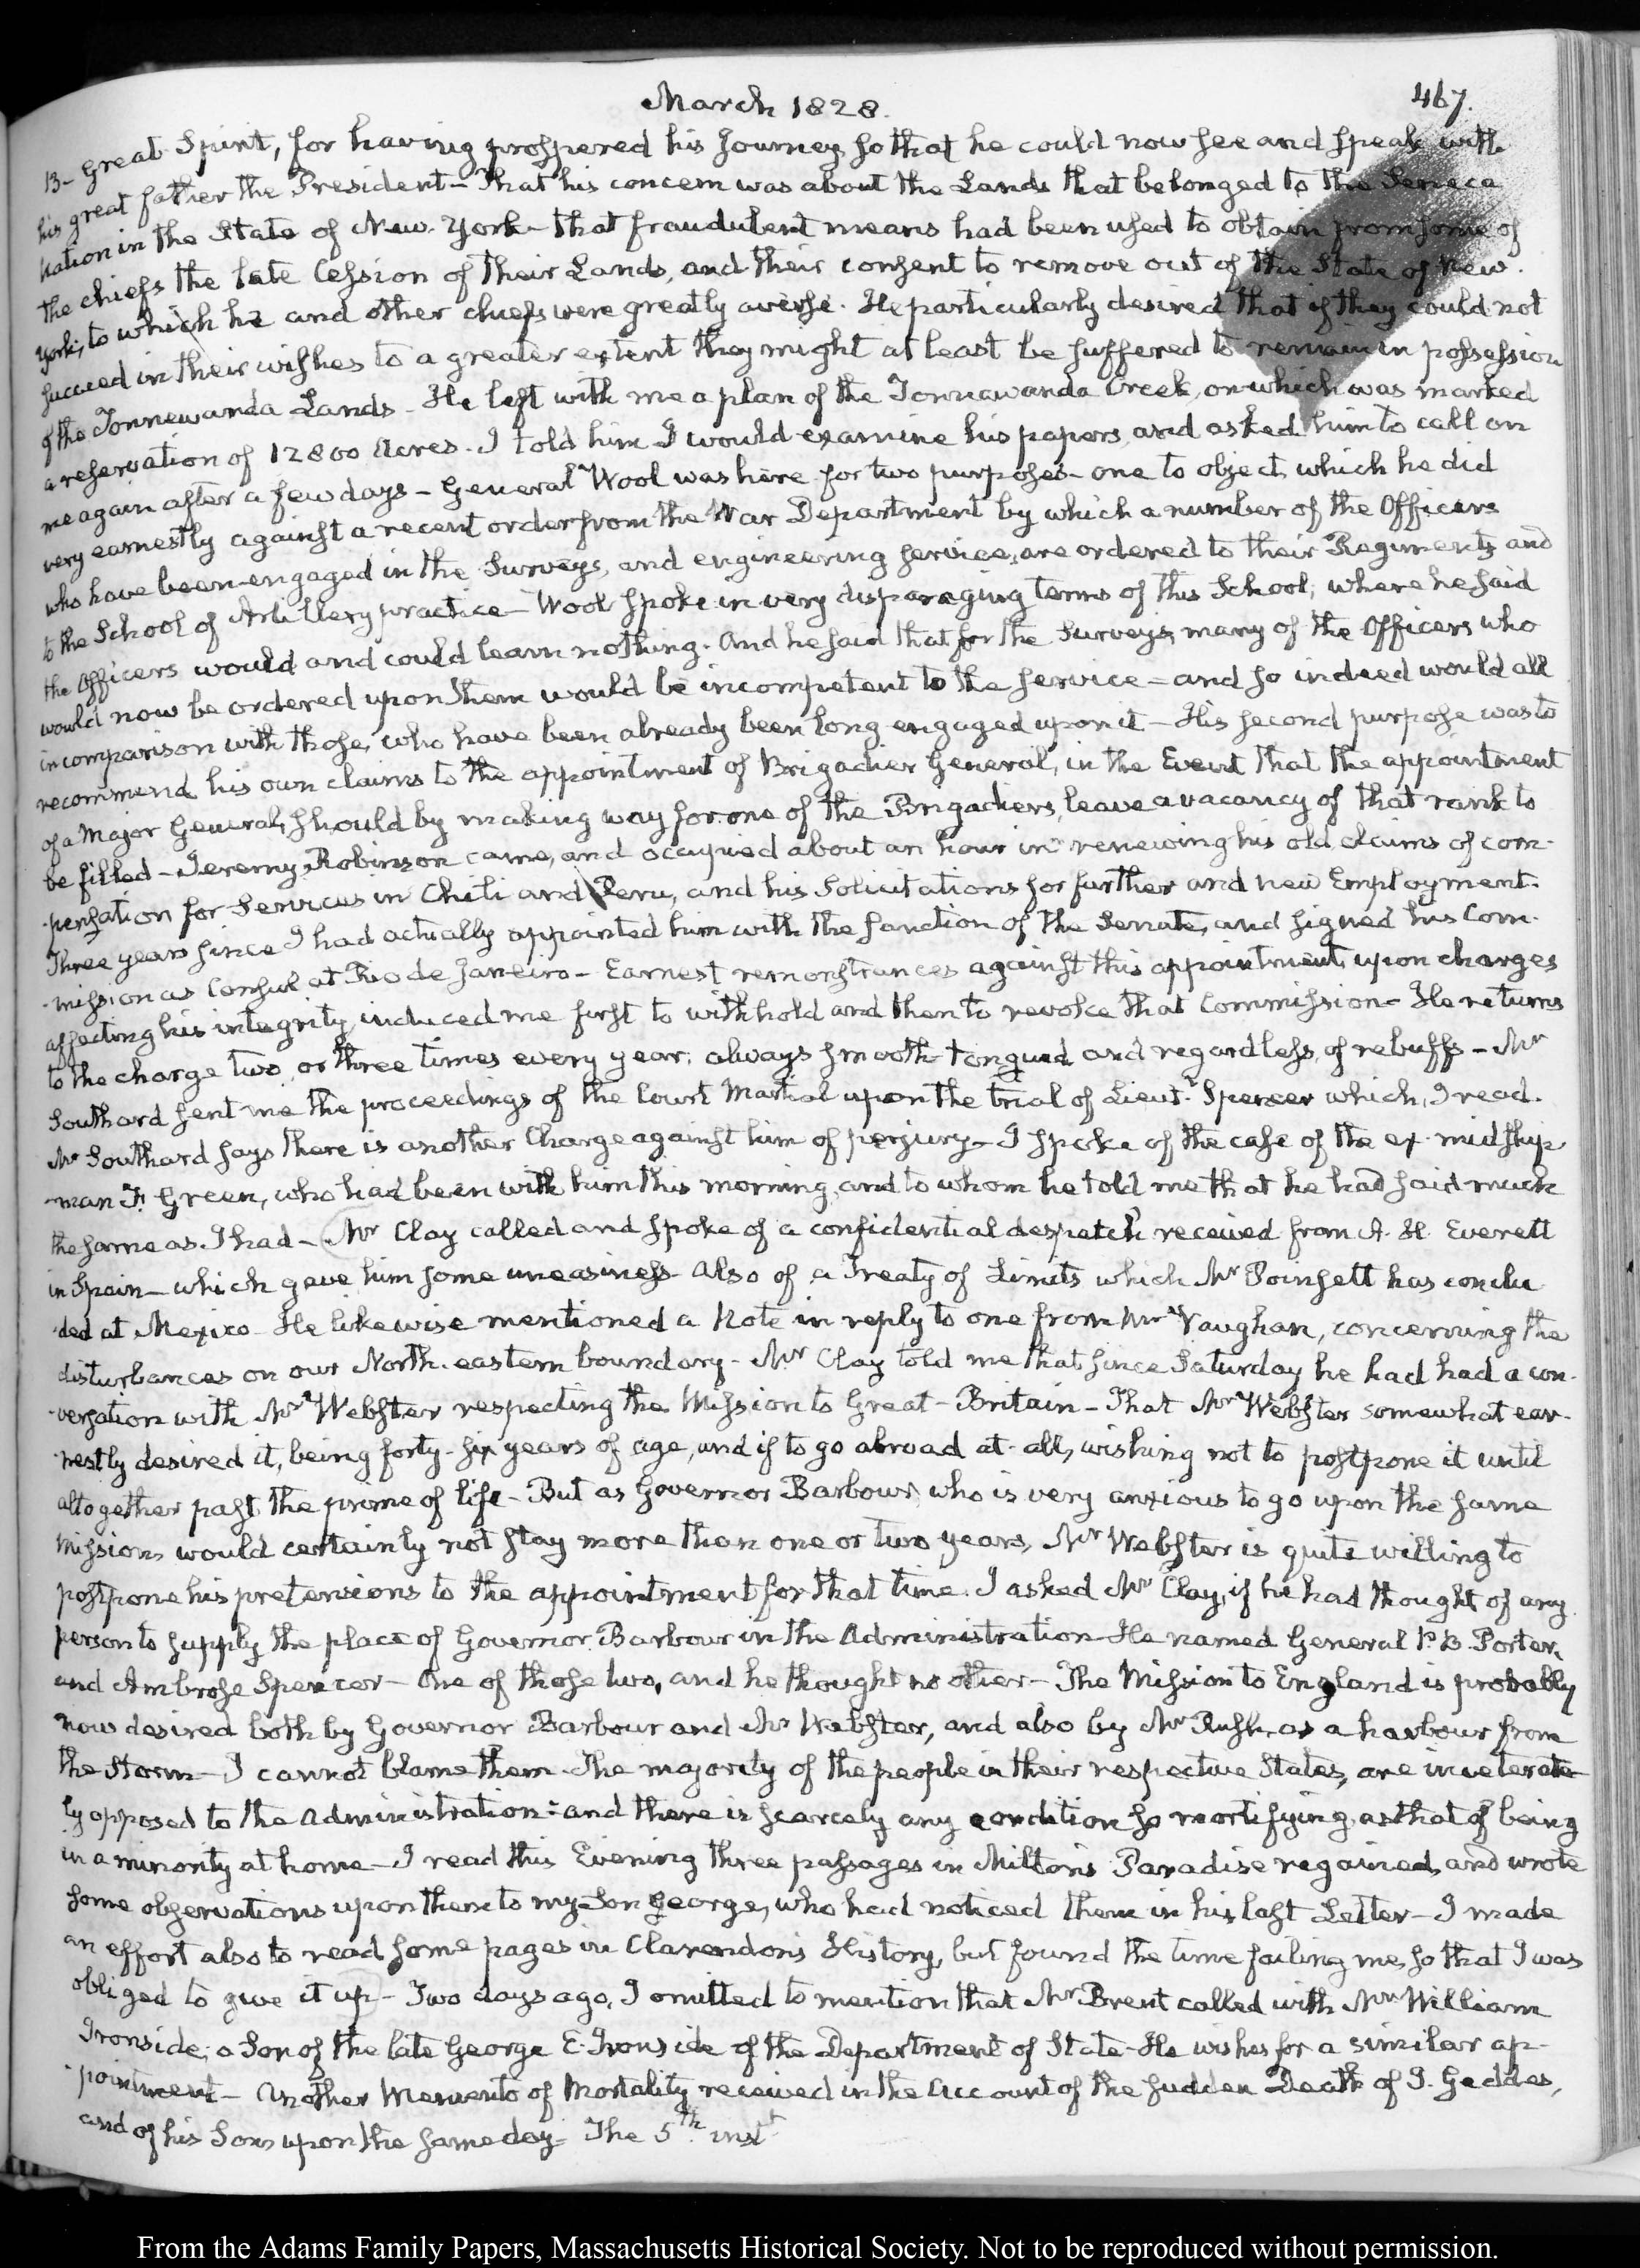 March 1828.
467.
13- great Spirit, for having prospered his Journey so that he could now see and speak with
his great father the President - That his concern was about the Lands that belonged to the Seneca
Nation in the State of New-York - that fraudulent means had been used to obtain from some of
the chiefs the late Cession of their Lands, and their consent to remove out of the State of New-
York, to which he and other chiefs were greatly averse. He particularly desired that if they could not
succeed in their wishes to a greater extent they might at least be suffered to remain in possession
of the Tonnewanda Lands - He left with me a plan of the Tonnawanda Creek, on which was marked
a reservation of 12800 Acres. I told him I would examine his papers, and asked him to call on
me again after a few days - General Wool was here for two purposes - one to object, which he did
very earnestly against a recent order from the War Department by which a number of the Officers
who have been engaged in the Surveys, and engineering service, are ordered to their Regiments and
to the School of Artillery practice - Wool spoke in very disparaging terms of this School; where he said
the Officers would and could learn nothing. And he said that for the Surveys, many of the Officers who
would now be ordered upon them would be incompetent to the service - and so indeed would all
in comparison with those, who have been already been long engaged upon it - His second purpose was to
recommend his own claims to the appointment of Brigadier General, in the Event that the appointment
of a Major General, should by making way for one of the Brigadiers, leave a vacancy of that rank to
be filled - Jeremy Robinson came, and occupied about an hour in renewing his old claims of com-
-pensation for Services in Chili and Peru, and his Solicitations for further and new Employment.
Three years since I had actually appointed him with the sanction of the Senate, and signed his Com-
-mission as Consul at Rio de Janeiro - Earnest remonstrances against this appointment, upon charges
affecting his integrity, induced me first to withhold and then to revoke that Commission - He returns
to the charge two, or three times every year; always smooth-tongued and regardless of rebuffs - Mr
Southard sent me the proceedings of the Court Martial upon the trial of Lieut. Spencer which, I read.
Mr Southard says there is another Charge against him of perjury - I spoke of the case of the ex-midship-
-man F. Green, who had been with him this morning, and to whom he told me that he had said much
the same as I had - Mr Clay called and spoke of a confidential despatch received from A. H. Everett
in Spain - which gave him some uneasiness - also of a Treaty of Limits which Mr Poinsett has conclu
-ded at Mexico - He likewise mentioned a Note in reply to one from Mr Vaughan, concerning the
disturbances on our North-eastern boundary - Mr Clay told me that since Saturday he had had a con-
-versation with Mr Webster respecting the Mission to Great-Britain - That Mr Webster somewhat ear-
-nestly desired it, being forty-six years of age, and if to go abroad at all, wishing not to postpone it until
altogether past the prime of life - But as Governor Barbour, who is very anxious to go upon the same
Mission, would certainly not stay more than one or two years, Mr Webster is quite willing to
postpone his pretensions to the appointment for that time. I asked Mr Clay, if he had thought of any
person to supply the place of Governor Barbour in the Administration - He named General P. B. Porter,
and Ambrose Spencer - One of those two, and he thought no other - The Mission to England is probably
now desired both by Governor Barbour and Mr Webster, and also by Mr Rush, as a harbour from
the Storm - I cannot blame them - The majority of the people in their respective States, are inveterate-
ly opposed to the Administration: and there is scarcely any condition so mortifying, as that of being
in a minority at home - I read this Evening three passages in Milton's Paradise regained, and wrote
some observations upon them to my Son George, who had noticed them in his last Letter - I made
an effort also to read some pages in Clarendon's History, but found the time failing me, so that I was
obliged to give it up - Two days ago, I omitted to mention that Mr Brent called with Mr William
Ironside; a Son of the late George E. Ironside of the Department of State - He wishes for a similar ap-
-pointment - Another Memento of Mortality received in the Account of the sudden Death of J. Geddes,
and of his Son upon the same day - The 5th inst
From the Adams Family Papers, Massachusetts Historical Society. Not to be reproduced without permission.